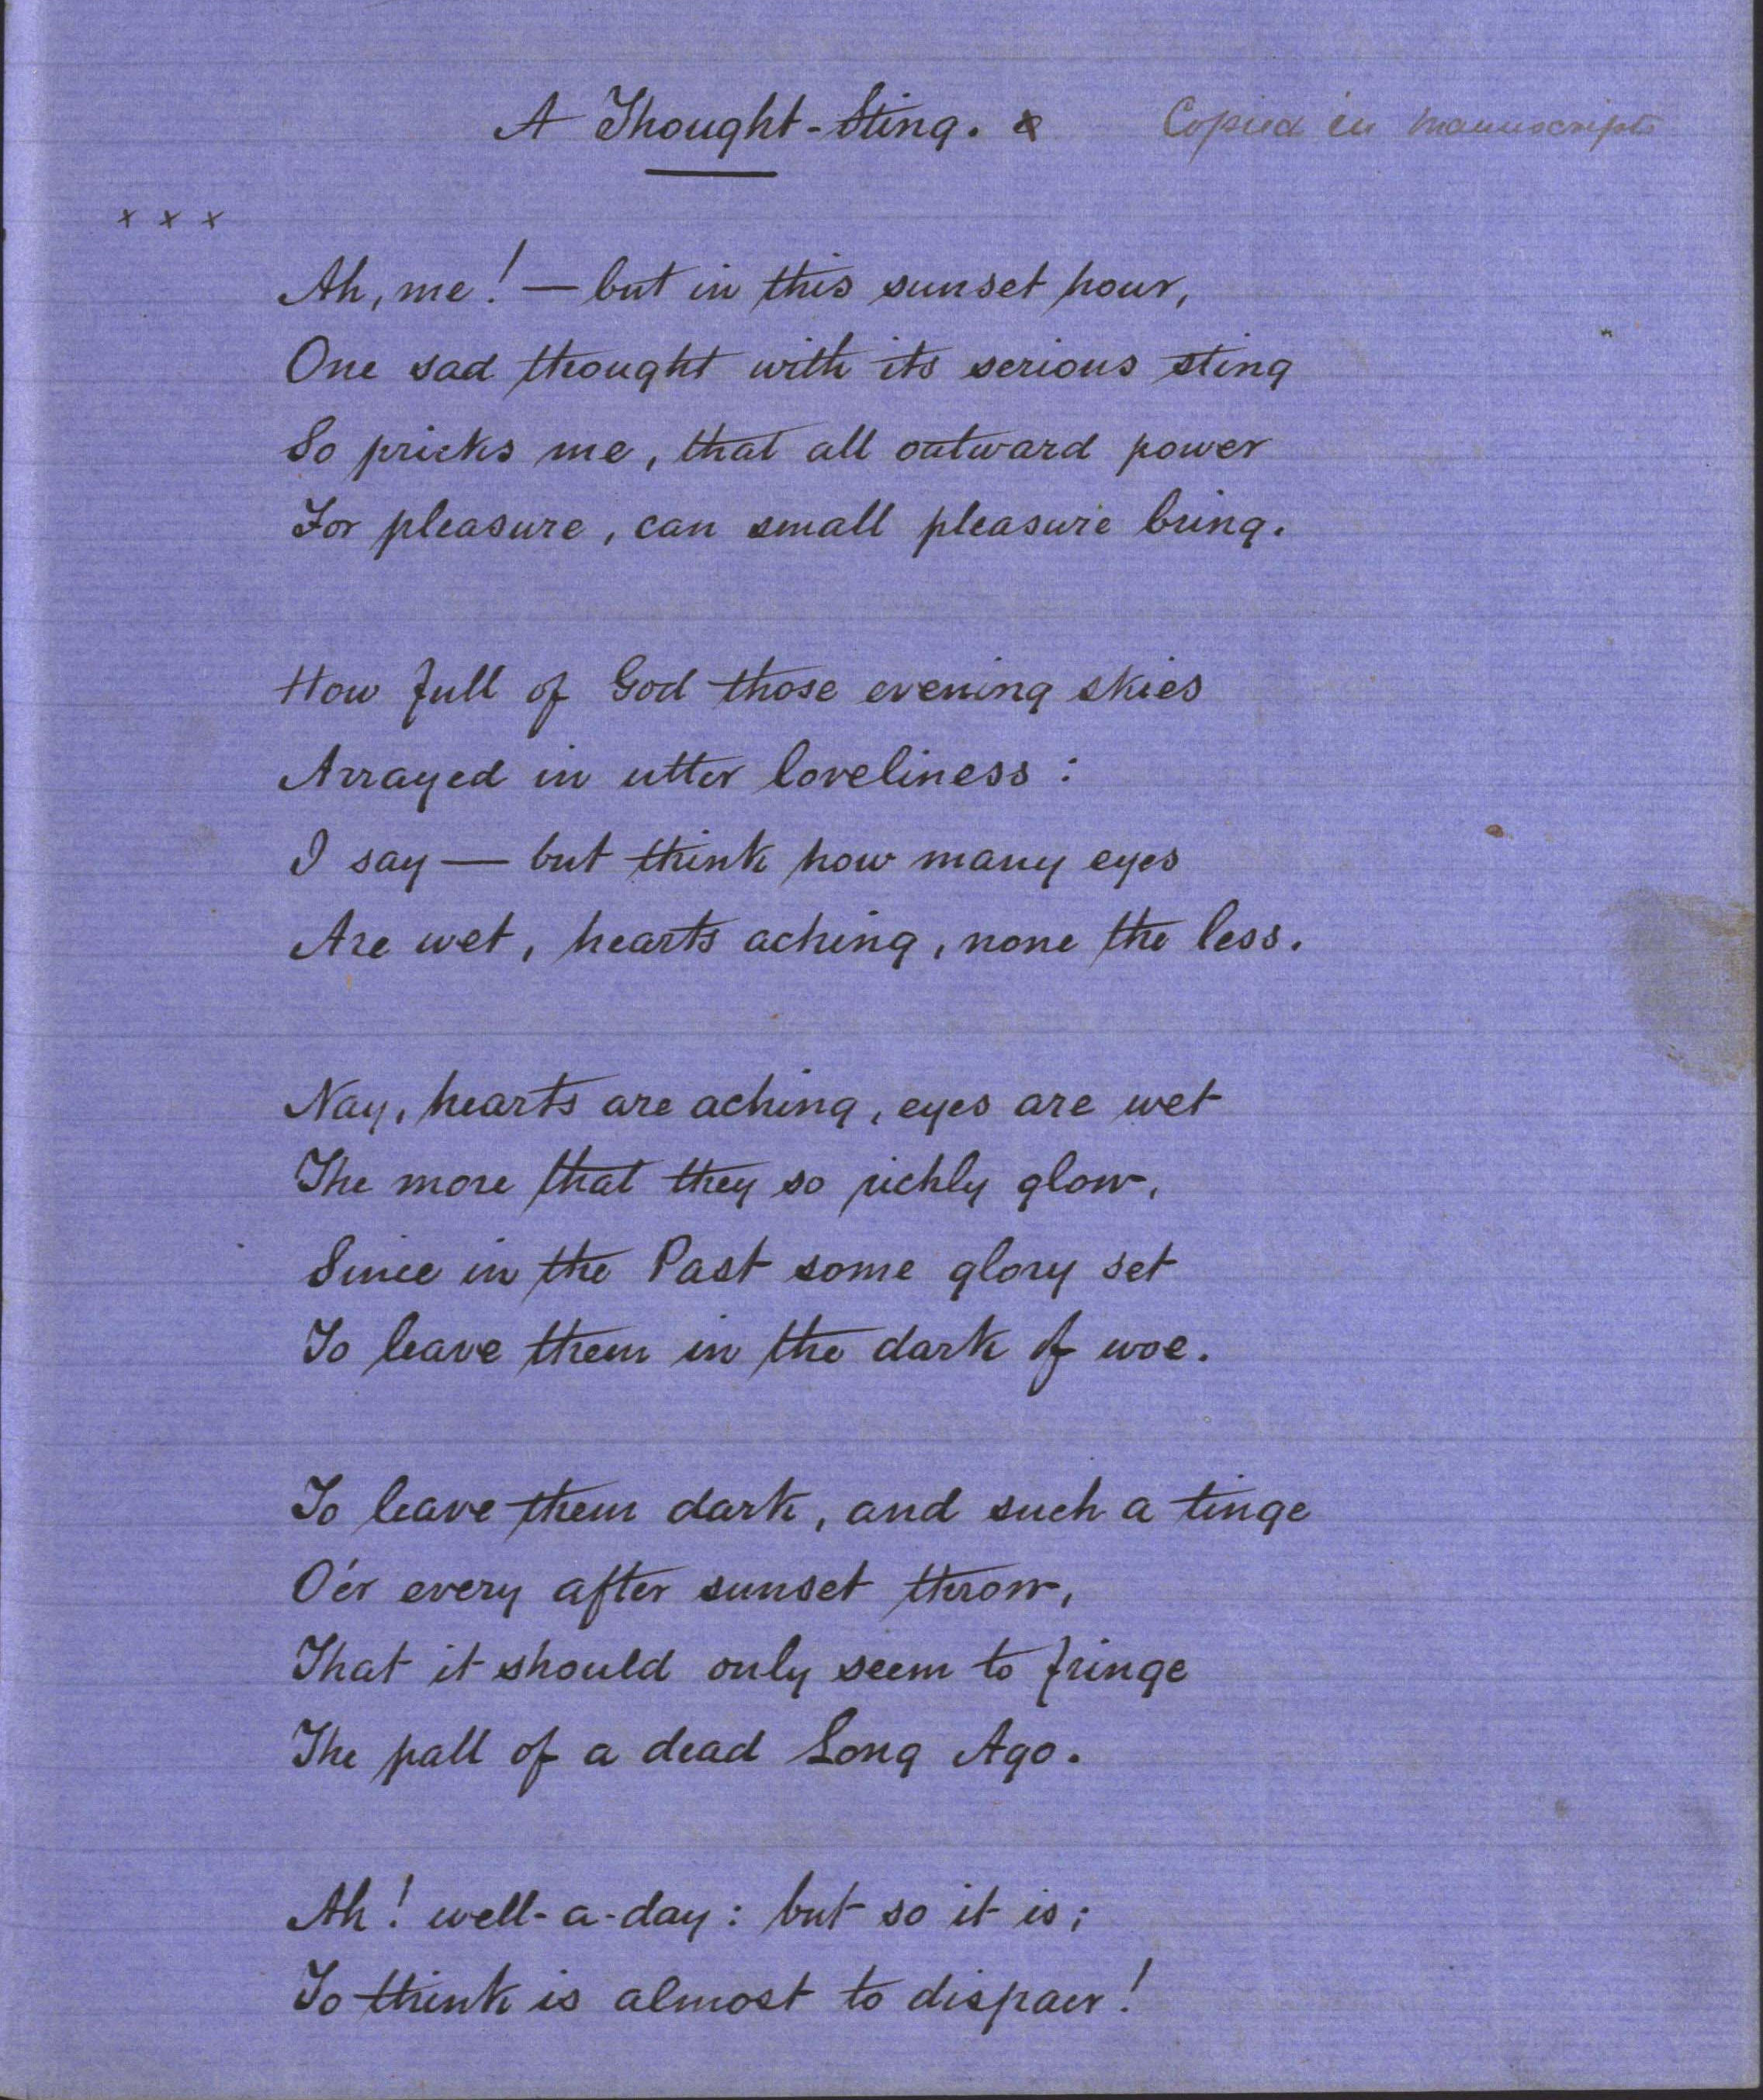 A Thought-Sting. x Copied in manuscripts
x x x
Ah, me! — but in this sunset hour,
One sad thought with its serious sting
So pricks me, that all outward power
For pleasure, can small pleasure bring.
How full of God those evening skies
Arrayed in utter loveliness:
I say — but think how many eyes
Are wet, hearts aching, none the less.
Nay, hearts are aching, eyes are wet
The more that they so richly glow,
Since in the Past some glory set
To leave them in the dark of woe.
To leave them dark, and such a tinge
O'er every after sunset throw,
That it should only seem to fringe
The pall of a dead Long Ago.
Ah! well-a-day: but so it is;
To think is almost to dispair!